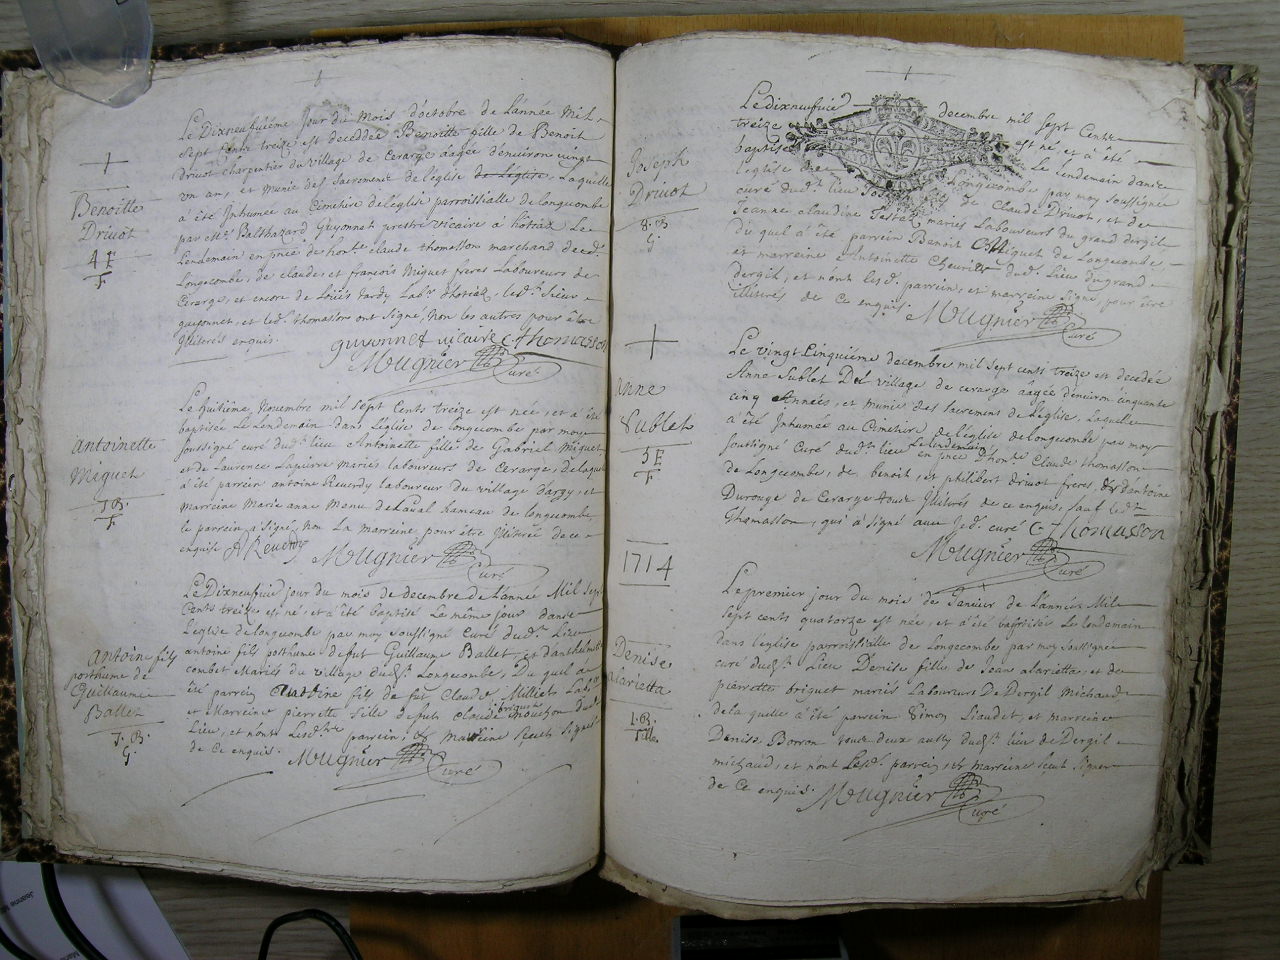 Benoitte
Druot
4 E
F
Le Dixneufuiéme Jour du Mois d'octobre de L'année Mil
sept Cents treize est decedée Benoitte fille de Benoit
Druot charpentier du village de Cerarge aagée d'enuiron vingt
vn an, et munie des sacrement de l'église de L'église, Laquelle
a été Inhumée au Cemetiere de l'eglise parroissialle de longecombe
par Mre Balthazard Guyonnet prestre vicaire a hotiaz Le
Lendemain en pnce de hon. claude thomasson marchand de
Longecombe, de claude, et françois Miguet freres Laboureurs de
Cerarge, et encore de Loüis tardy Labr d'hotiaz, lesd. sieur
guyonnet, et led. thomasson ont signé, Non les autres pour être
Illiteres enquis.
guyonnet uicaire C thomasson
Mougnier
Curé
antoinette
Miguet
3 B.
F.
Le huitiéme Novembre mil sept Cents treize est née, et a été
baptisée Le Lendemain dans L'eglise de Longecombe par moy
soussigné curé dud. lieu Antoinette fille de Gabriel Miguet
et de Laurence Lapierre mariés laboureurs de Cerarge, de laquelle
a été parrein antoine Reuerdy laboureur du village d'argy, et
Marreine Marie anne Monu de Laual hameau de longecombe,
le parrein a signé, Non La marreine pour être Illiterée de ce
enquise A Reuerdy Mougnier
Curé
antoine fils
posthume de
Guillaume
Ballet
7. B.
G
Le Dixneufuié jour du mois de decembre de L'année Mil sept
Cents treize est né, et a été baptisé Le même jour dans
L'eglise de longecombe par moy soussigné Curé dud. Lieu
antoine fils posthume de fut Guillaume Ballet, et d'anthelmette
combet Mariés du village dud. Longecombe, Du quel a
été parrein Antoine fils de feu Claude Milliet
et Marreine pierrette fille defut claude briguet mouchon
Lieu, et n'ont Lesd. parrein, et marreine sçeut signer
de Ce enquis. Mougnier
Curé
Joseph
Druot
8. B
G
Le dixneufuié decembre mil sept Cents
treize est né, et a été
baptisé Le lendemain dans
l'eglise de Longecombe par moy soussigné
curé dud. lieu Joseph fils de Claude Druot, et de
Jeanne claudine Testaz mariés Laboureurs du grand dergil
du quel a été parrein Benoit Miguet de Longecombe,
et marreine Antoinette Cheurier dud. Lieu du grand
dergil, et n'ont lesd. parrein, et marreine signé, pour être
illiterés de Ce enquis Mougnier
Curé
anne
Sublet
5 E
F
Le vingt Cinquiéme decembre mil sept cents treize est decedée
Anne Sublet Du village de cerarge aagée denuiron cinquante
cinq Années, et munie des sacrement de L'eglise, Laquelle
a été Inhumée au Cemetiere de L'eglise de longecombe par moy
soussigné Curé dud. lieu Le Lendemain en pnce d'hon. Claude thomasson
de Longecombe, de benoit, et philibert druot freres, & d'antoine
Durouge de Cerarge tous Illiteres de ce enquis, sauf led.
thomasson, qui a signé auec Je d. curé C Thomasson
Mougnier
Curé
1714
Denise
alarietta
1. B.
fille
Le premier jour du mois de Januier de L'année Mil
sept cents quatorze est née, et a été baptisée Le lendemain
dans l'eglise parroissialle de Longecombe par moy soussigné
curé dud. Lieu Denise fille de Jean alarietta, et de
pierrette briguet mariés Laboureurs De Dergil michaud
de la quelle a été parrein Simon Liaudet, et marreine
Denise Borron tous deux aussy dud. lieu de Dergil
michaud, et n'ont Lesd. parrein et marreine sçeut signer
de Ce enquis. Mougnier
Curé